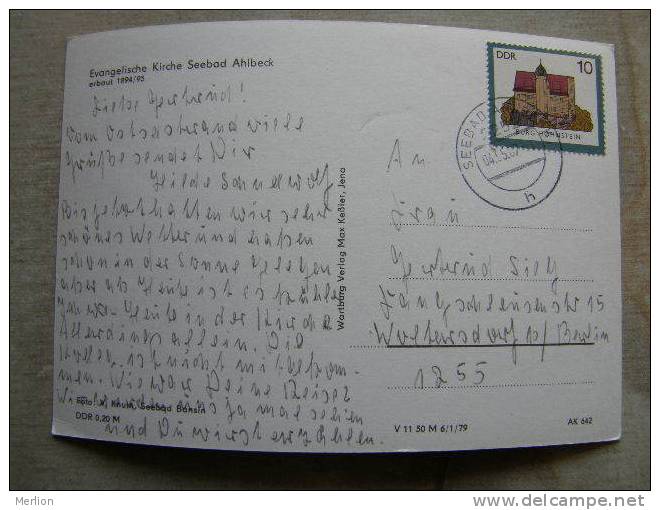 Evangelische Kirche Seebad Ahlbeck
erbaut 1894/95
Liebe Gertrud!
Vom Ostseestrand viele
Grüße sendet Dir
Hilde Sandwolf
Bis jetzt hatten wir sehr
schönes Wetter und haben
schon in der Sonne gelegen
aber ab Heute ist es kühler
Heute in der Kirche
Allerdings allein. Die
ist nicht mitgekom-
men. Wie war Deine Reise?
Wir uns ja mal sehen
und Du wirst erzählen.
Foto: X. Knuth, Seebad Bansin
DDR 0,20 M
Wartburg Verlag Max Keßler, Jena
V 11 50 M 6/1/79
AK 642
DDR
10
BURG HOHNSTEIN
SEEBAD
04.
h
An
Frau
Gertrud
15
Woltersdorf b/ Berlin
1255
Merlion
www.delcampe.net